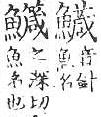 音針
魚名
鱵
之深切
魚名也